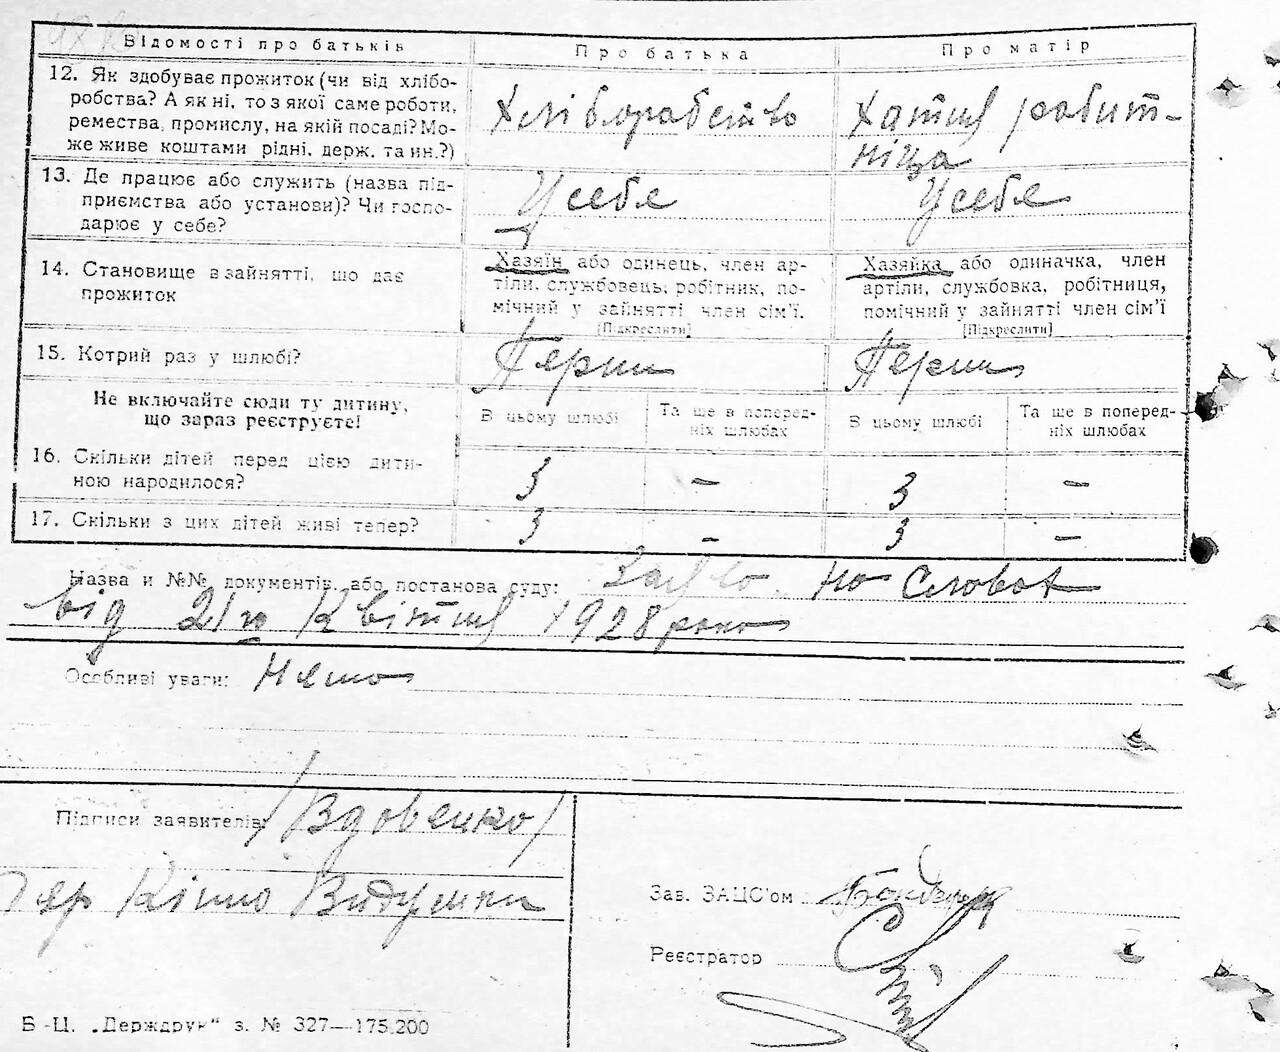 Відомості про батьків
Про батька
Про матір
12. Як здобуває прожиток (чи від хлібо-
робства? А як ні, то з якої саме роботи,
ремества, промислу, на якій посаді? Мо-
же живе коштами рідні, держ. та ин.?)
Хліборабство
Хатня работ-
ніца
13. Де працює або служить (назва під-
приємства або установи)? Чи госпо-
дарює у себе?
У себе
У себе
14. Становище в зайнятті, що дає
прожиток
Хазяїн або одинець, член ар-
тіли, службовець, робітник, по-
мічний у зайнятті член сім'ї.
[Підкреслити]
Хазяйка або одиначка, член
артіли, службовка, робітниця,
помічний у зайнятті член сім'ї
[Підкреслити]
15. Котрий раз у шлюбі?
Перши
Перши
Не включайте сюди ту дитину,
що зараз реєструєте!
В цьому шлюбі
Та ще в поперед-
ніх шлюбах
В цьому шлюбі
Та ще в поперед-
ніх шлюбах
16. Скільки дітей перед цією дити-
ною народилося?
3 – 3 –
17. Скільки з цих дітей живі тепер?
3 – 3 –
Назва и №№ документів, або постанова суду: на Словах
від 21го Квітня 1928 року
Особливі уваги:
Підписи заявителів: /Вдовенко/
Зав. ЗАЦС'ом
Реєстратор
Б-Ц. „Держдрук“ з. № 327—175.200